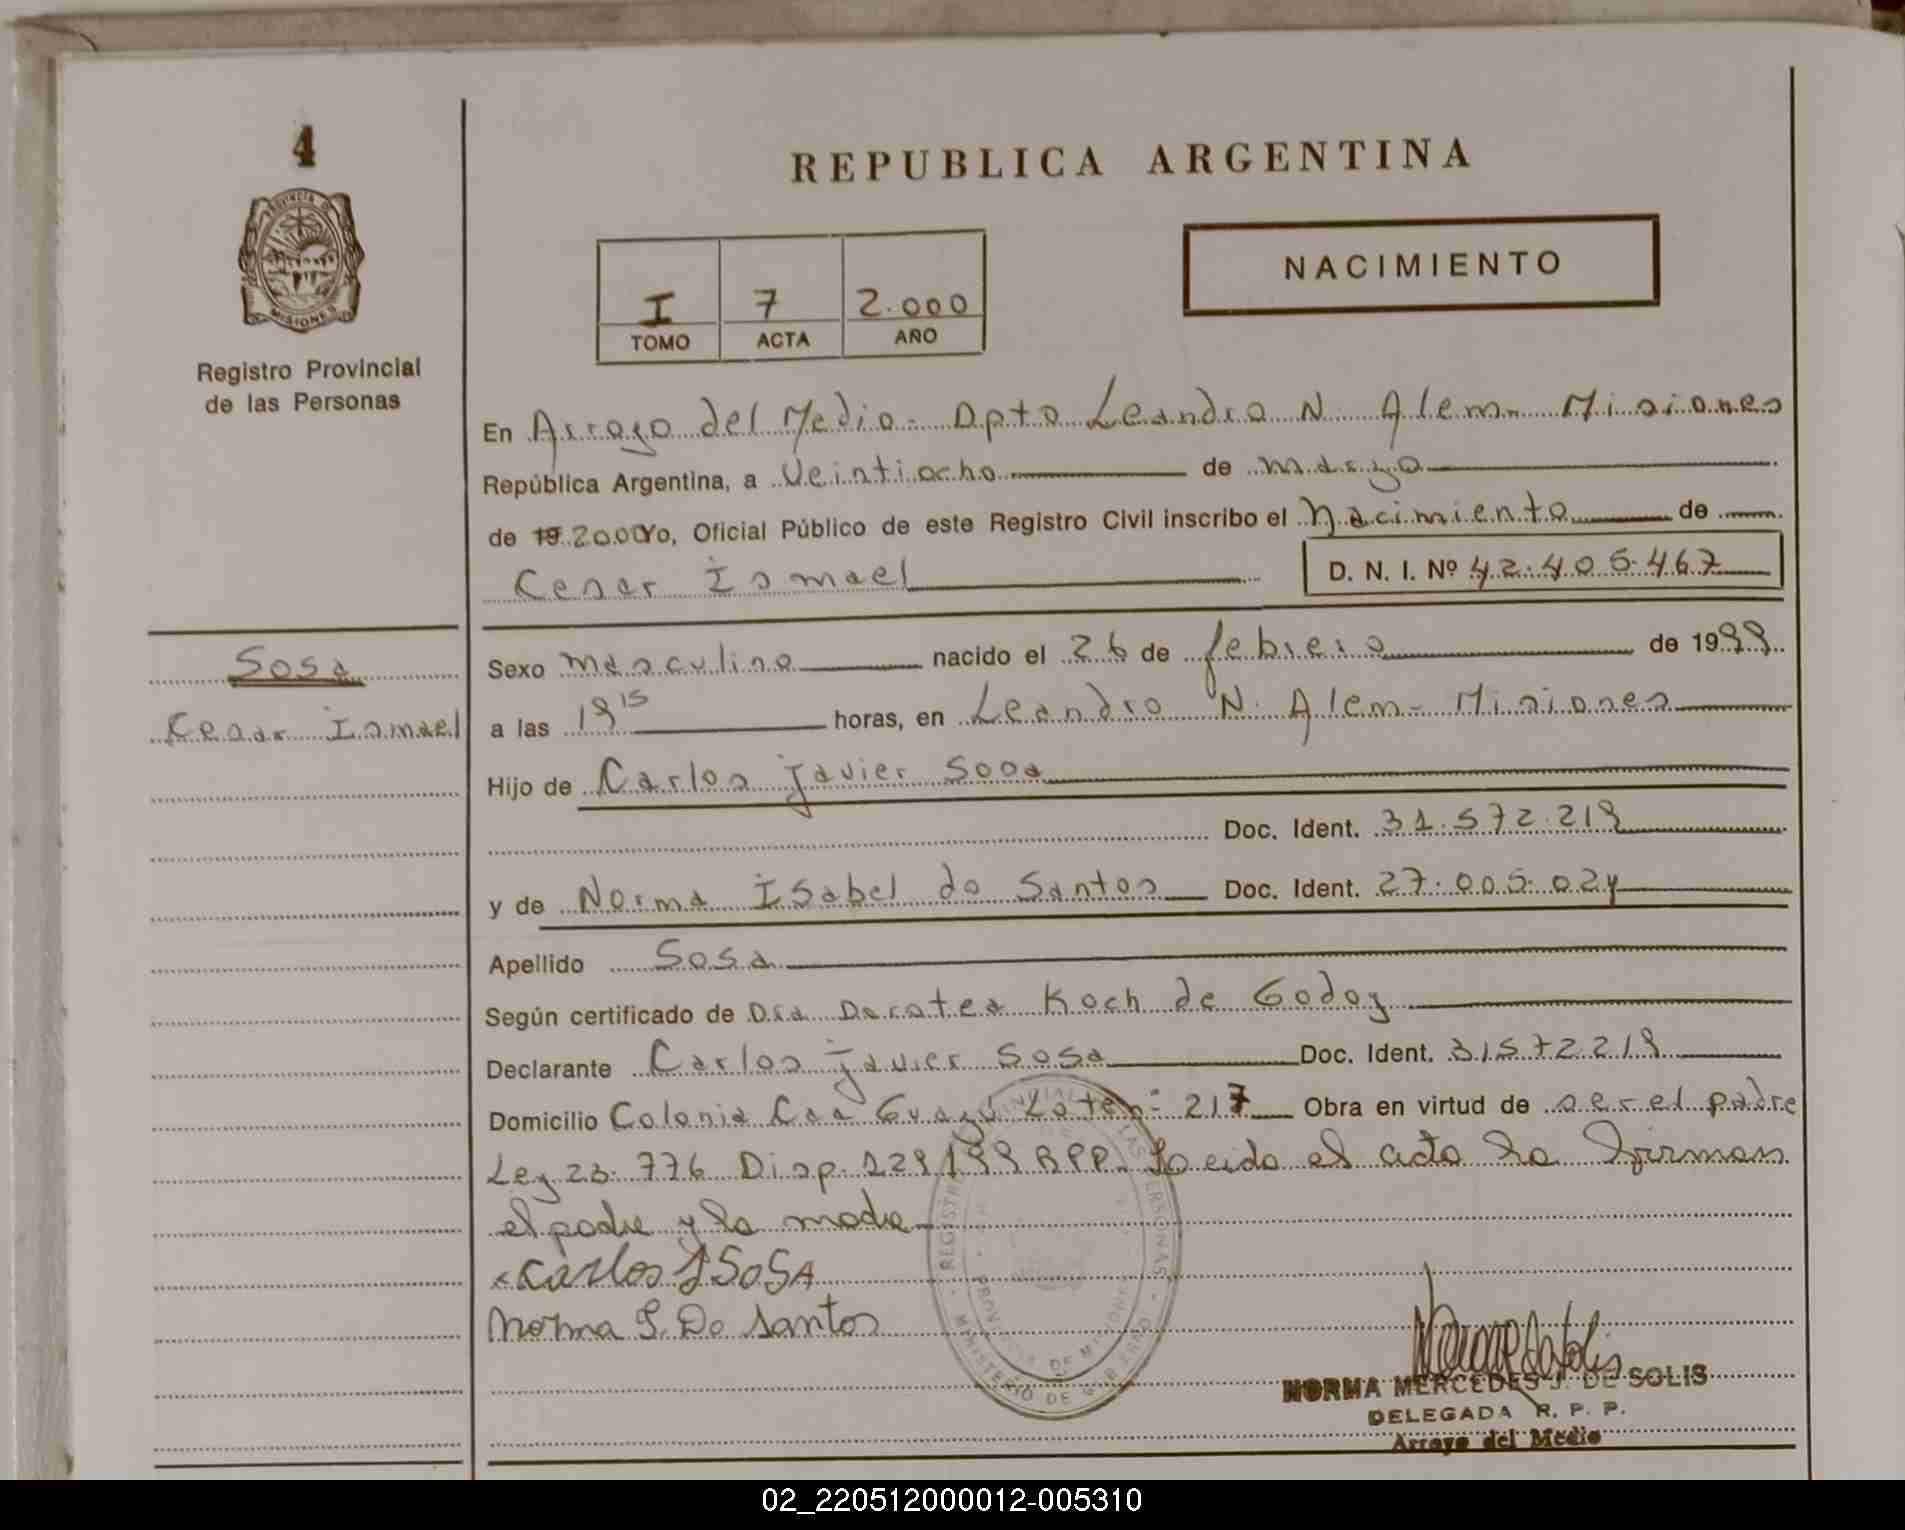 4
PROVINCIA DE
MISIONES
Registro Provincial
de las Personas
REPUBLICA ARGENTINA
I 7 2.000
TOMO ACTA AÑO
NACIMIENTO
En Arroyo del Medio - Dpto Leandro N. Alem - Misiones
República Argentina, a Veintiocho de marzo
de 19 2000 Yo, Oficial Público de este Registro Civil inscribo el Nacimiento de
Cesar Ismael
D. N. I. Nº 42.405.467
Sosa
Cesar Ismael
Sexo masculino nacido el 26 de febrero de 1999
a las 19 15 horas, en Leandro N. Alem - Misiones
Hijo de Carlos Javier Sosa
Doc. Ident. 31.572.219
y de Norma Isabel do Santos Doc. Ident. 27.005.024
Apellido Sosa
Según certificado de Dra Dorotea Koch de Godoy
Declarante Carlos Javier Sosa Doc. Ident. 31572219
Domicilio Colonia Caa Guazú Lote nº 217 Obra en virtud de ser el padre
Ley 23.776 Disp. 129/99 RPP. Leido el acta la firman
el padre y la madre
Carlos J Sosa
Norma I. Do Santos
REGISTRO PROVINCIAL DE LAS PERSONAS
PROVINCIA DE MISIONES
MINISTERIO DE GOBIERNO
NORMA MERCEDES J. DE SOLIS
DELEGADA R. P. P.
Arroyo del Medio
02_220512000012-005310